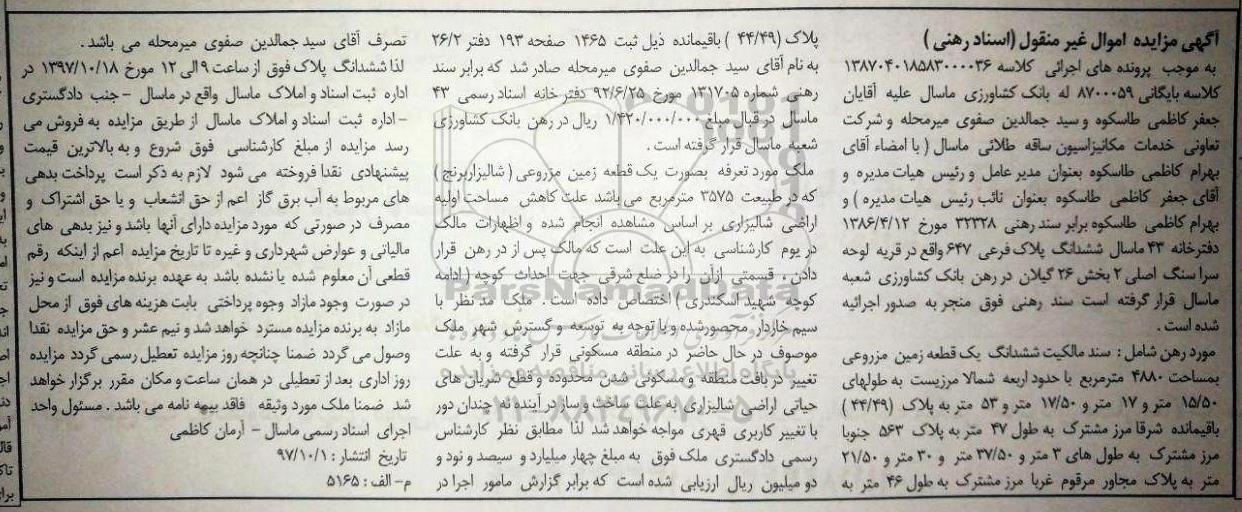 آگهی مزایده اموال غیر منقول (اسناد رهنی)
به موجب پرونده های اجرائی کلاسه ۱۳۸۷۰۴۰۱۸۵۸۳۰۰۰۰۳۶
کلاسه بایگانی ۸۷۰۰۰۵۹ له بانک کشاورزی ماسال علیه آقایان
جعفر کاظمی طاسکوه و سید جمالدین صفوی میرمحله و شرکت
تعاونی خدمات مکانیزاسیون ساقه طلائی ماسال (با امضاء آقای
بهرام کاظمی طاسکوه بعنوان مدیر عامل و رئیس هیات مدیره و
آقای جعفر کاظمی طاسکوه بعنوان نائب رئیس هیات مدیره) و
بهرام کاظمی طاسکوه برابر سند رهنی ۳۲۳۲۸ مورخ ۱۳۸۶/۴/۱۲
دفترخانه ۴۳ ماسال ششدانگ پلاک فرعی ۶۴۷ واقع در قریه لوحه
سرا سنگ اصلی ۲ بخش ۲۶ گیلان در رهن بانک کشاورزی شعبه
ماسال قرار گرفته است سند رهنی فوق منجر به صدور اجرائیه
شده است.
مورد رهن شامل: سند مالکیت ششدانگ یک قطعه زمین مزروعی
بمساحت ۴۸۸۰ مترمربع با حدود اربعه شمالا مرزیست به طولهای
۱۵/۵۰ متر و ۱۷ متر و ۱۷/۵۰ متر و ۵۳ متر به پلاک (۴۴/۴۹)
باقیمانده شرقا مرز مشترک به طول ۴۷ متر به پلاک ۵۶۳ جنوبا
مرز مشترک به طول های ۳ متر و ۳۷/۵۰ متر و ۳۰ متر و ۲۱/۵۰
متر به پلاک مجاور مرقوم غربا مرز مشترک به طول ۴۶ متر به
پلاک (۴۴/۴۹) باقیمانده ذیل ثبت ۱۴۶۵ صفحه ۱۹۳ دفتر ۲۶/۲
به نام آقای سید جمالدین صفوی میرمحله صادر شد که برابر سند
رهنی شماره ۱۳۱۷۰۵ مورخ ۹۲/۶/۲۵ دفتر خانه اسناد رسمی ۴۳
ماسال در قبال مبلغ ۱/۴۲۰/۰۰۰/۰۰۰ ریال در رهن بانک کشاورزی
شعبه ماسال قرار گرفته است.
ملک مورد تعرفه بصورت یک قطعه زمین مزروعی (شالیزاربرنج)
که در طبیعت ۳۵۷۵ مترمربع می باشد علت کاهش مساحت اولیه
اراضی شالیزاری بر اساس مشاهده انجام شده و اظهارات مالک
در یوم کارشناسی به این علت است که مالک پس از در رهن قرار
دادن، قسمتی ازآن را در ضلع شرقی جهت احداث کوچه (ادامه
کوچه شهید اسکندری) اختصاص داده است. ملک مد نظر با
سیم خاردار محصورشده و با توجه به توسعه و گسترش شهر ملک
موصوف در حال حاضر در منطقه مسکونی قرار گرفته و به علت
تغییر در بافت منطقه و مسکونی شدن محدوده و قطع شریان های
حیاتی اراضی شالیزاری به علت ساخت و ساز در آینده نه چندان دور
با تغییر کاربری قهری مواجه خواهد شد لذا مطابق نظر کارشناس
رسمی دادگستری ملک فوق به مبلغ چهار میلیارد و سیصد و نود و
دو میلیون ریال ارزیابی شده است که برابر گزارش مامور اجرا در
تصرف آقای سید جمالدین صفوی میرمحله می باشد.
لذا ششدانگ پلاک فوق از ساعت ۹ الی ۱۲ مورخ ۱۳۹۷/۱۰/۱۸ در
اداره ثبت اسناد و املاک ماسال واقع در ماسال - جنب دادگستری
- اداره ثبت اسناد و املاک ماسال از طریق مزایده به فروش می
رسد مزایده از مبلغ کارشناسی فوق شروع و به بالاترین قیمت
پیشنهادی نقدا فروخته می شود لازم به ذکر است پرداخت بدهی
های مربوط به آب برق گاز اعم از حق انشعاب و یا حق اشتراک و
مصرف در صورتی که مورد مزایده دارای آنها باشد و نیز بدهی های
مالیاتی و عوارض شهرداری و غیره تا تاریخ مزایده اعم از اینکه رقم
قطعی آن معلوم شده یا نشده باشد به عهده برنده مزایده است و نیز
در صورت وجود مازاد وجوه پرداختی بابت هزینه های فوق از محل
مازاد به برنده مزایده مسترد خواهد شد و نیم عشر و حق مزایده نقدا
وصول می گردد ضمنا چنانچه روز مزایده تعطیل رسمی گردد مزایده
روز اداری بعد از تعطیلی در همان ساعت و مکان مقرر برگزار خواهد
شد ضمنا ملک مورد وثیقه فاقد بیمه نامه می باشد. مسئول واحد
اجرای اسناد رسمی ماسال - آرمان کاظمی
تاریخ انتشار: ۹۷/۱۰/۱
م- الف: ۵۱۶۵
ParsNamadData
پایگاه اطلاع رسانی مناقصه و مزایده